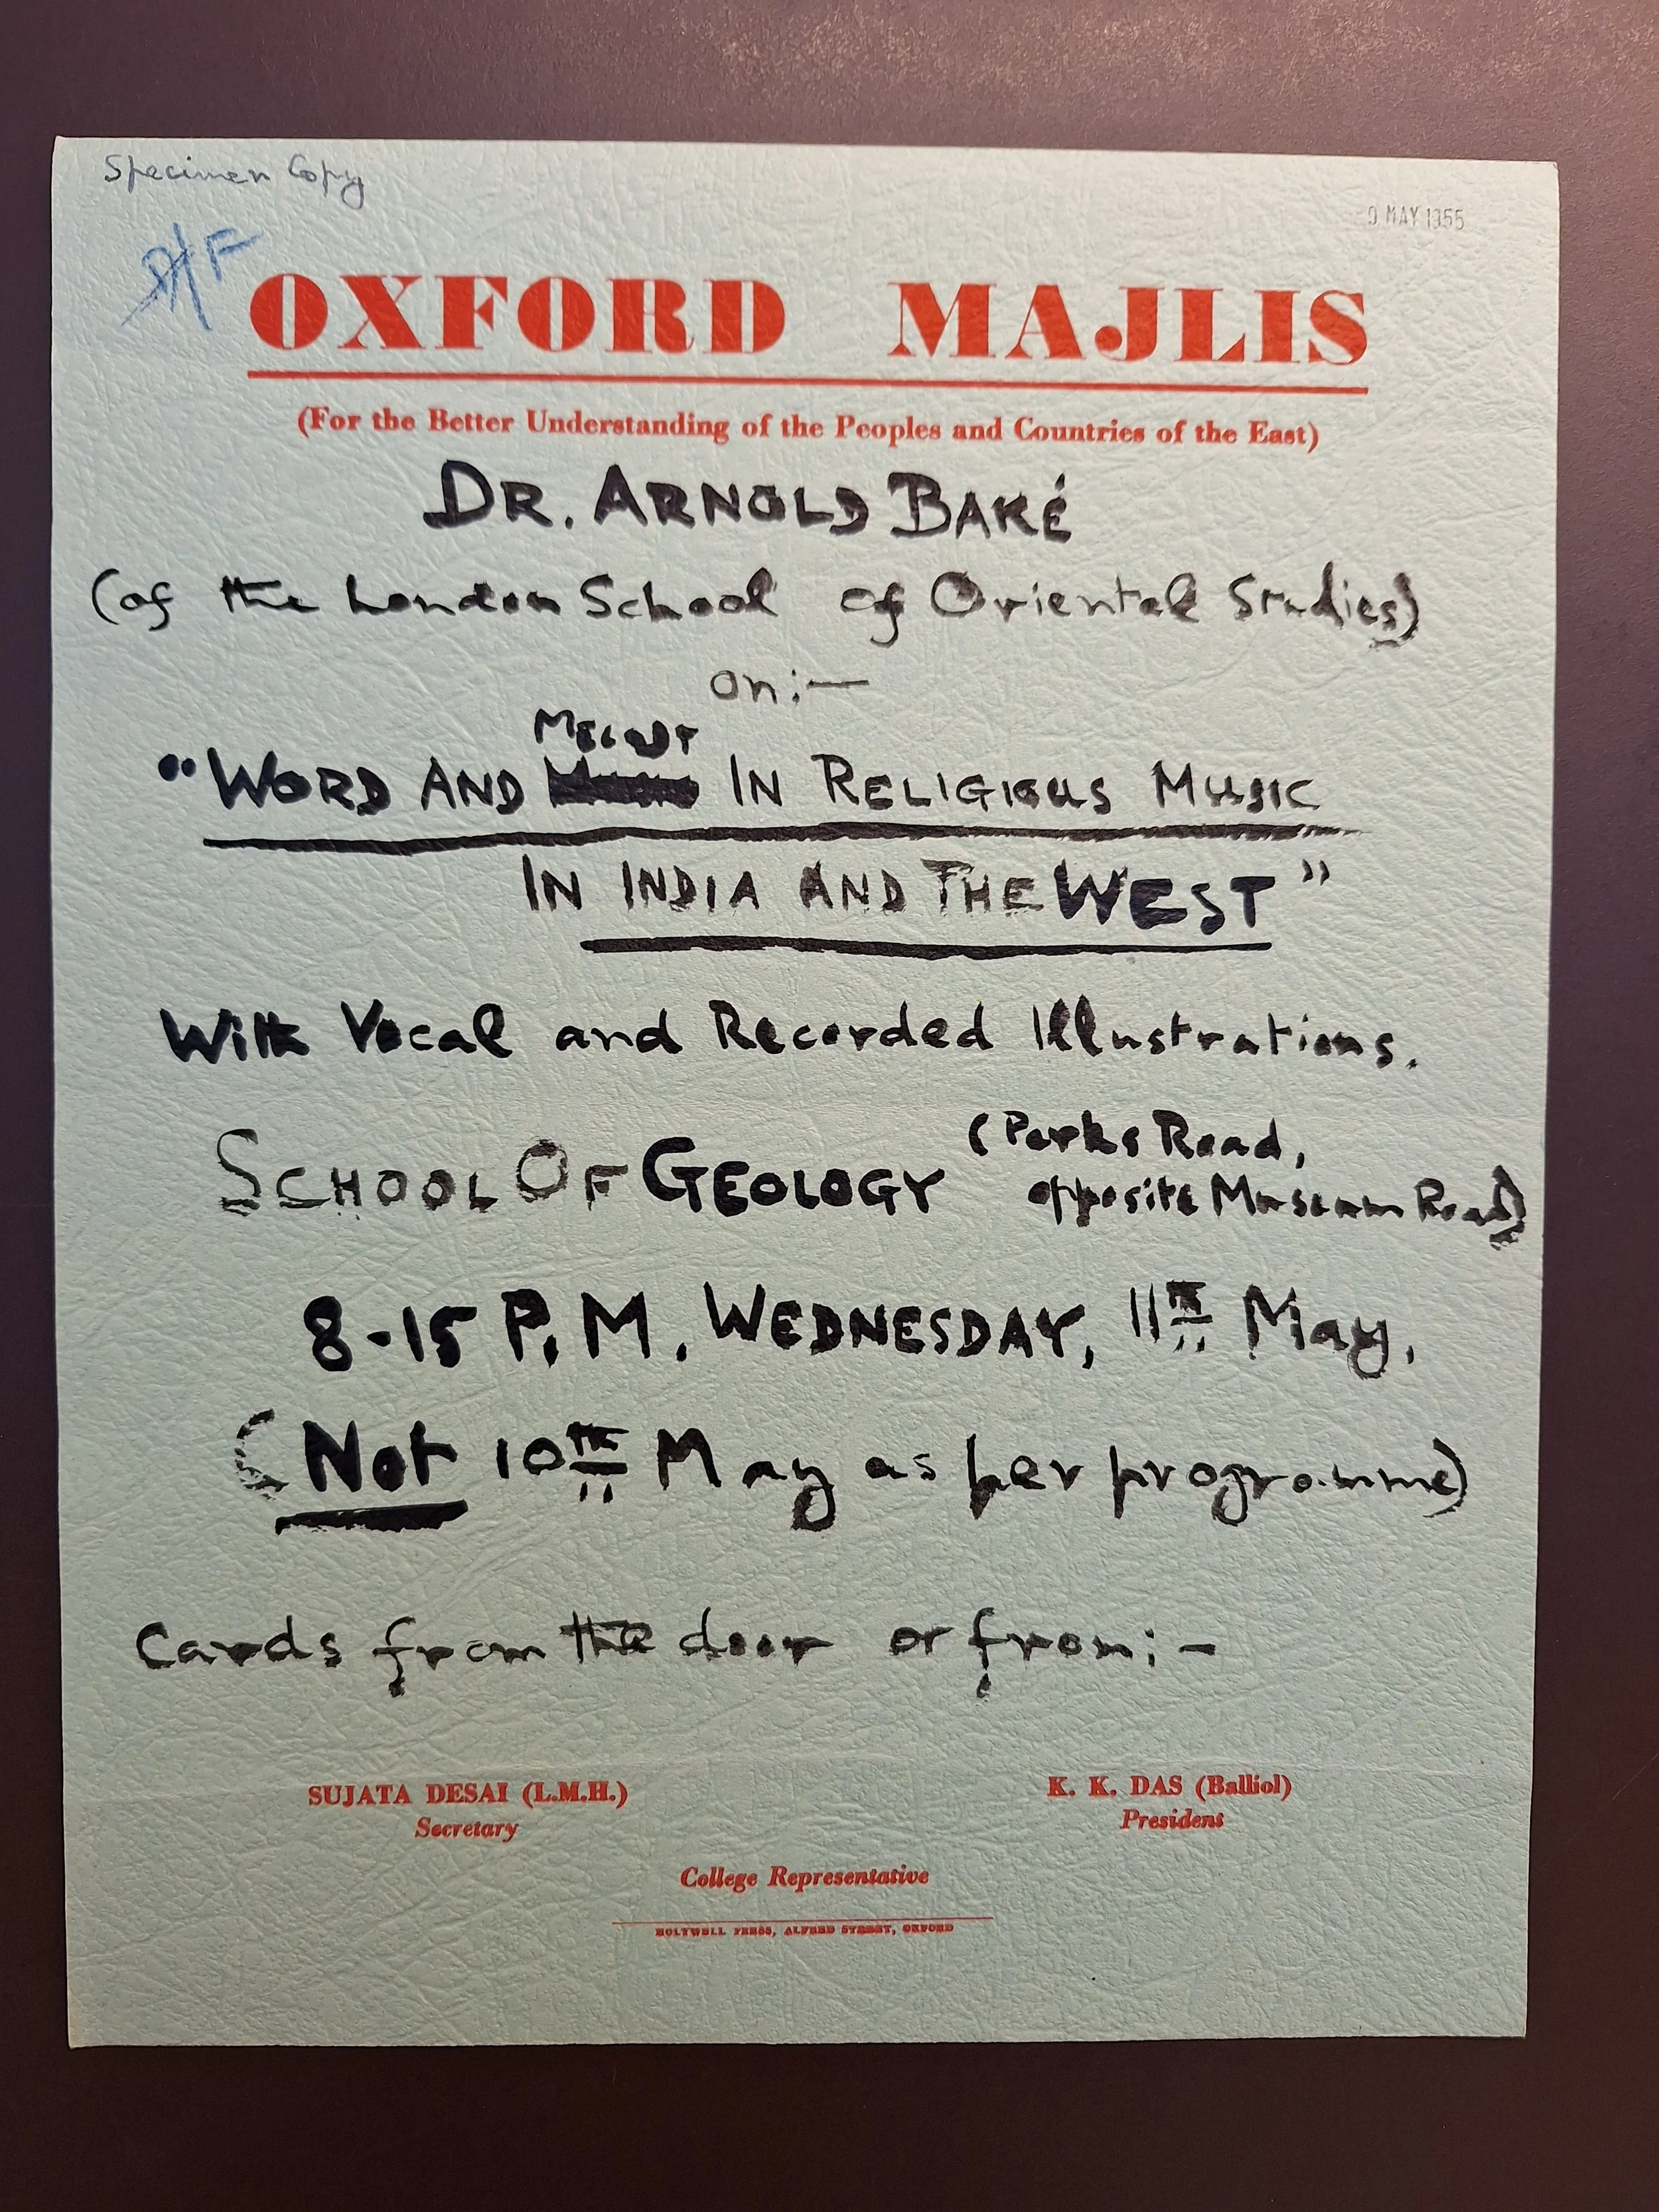 Specimen Copy
9 MAY 1955
OXFORD MAJLIS
(For the Better Understanding of the Peoples and Countries of the East)
DR. ARNOLD BAKÉ
(of the London School of Oriental Studies)
on:—
MELODY
"WORD AND IN RELIGIOUS MUSIC
IN INDIA AND THE WEST"
With Vocal and Recorded Illustrations.
SCHOOL OF GEOLOGY (Parks Road,
opposite Museum Road)
8-15 P.M. WEDNESDAY, 11TH May,
(Not 10th May as per programme)
Cards from the door or from:-
SUJATA DESAI (L.M.H.) K. K. DAS (Balliol)
Secretary President
College Representative
HOLYWELL PRESS, ALFRED STREET, OXFORD